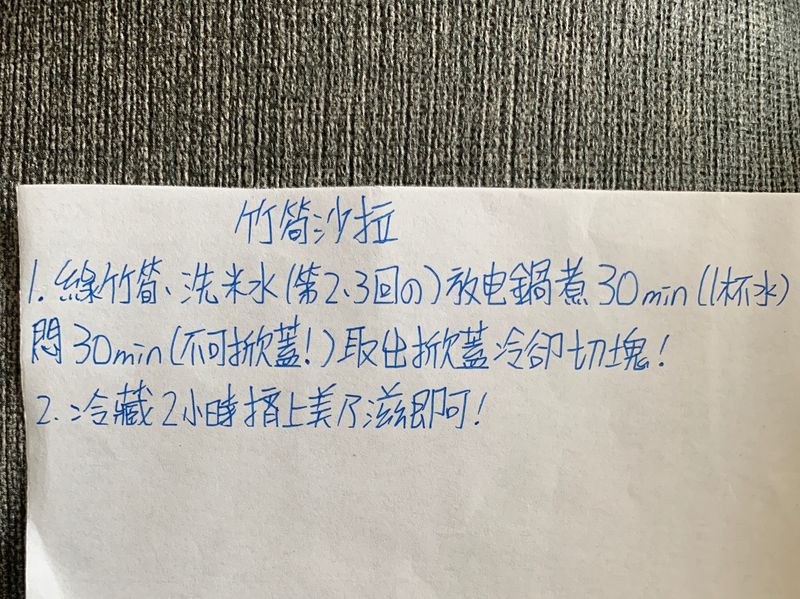 竹筍沙拉
1. 綠竹筍、洗米水(第2、3回の)放电鍋煮30min(1杯水)
悶30min(不可掀蓋!)取出掀蓋冷卻切塊!
2. 冷藏2小時擠上美乃滋即可!